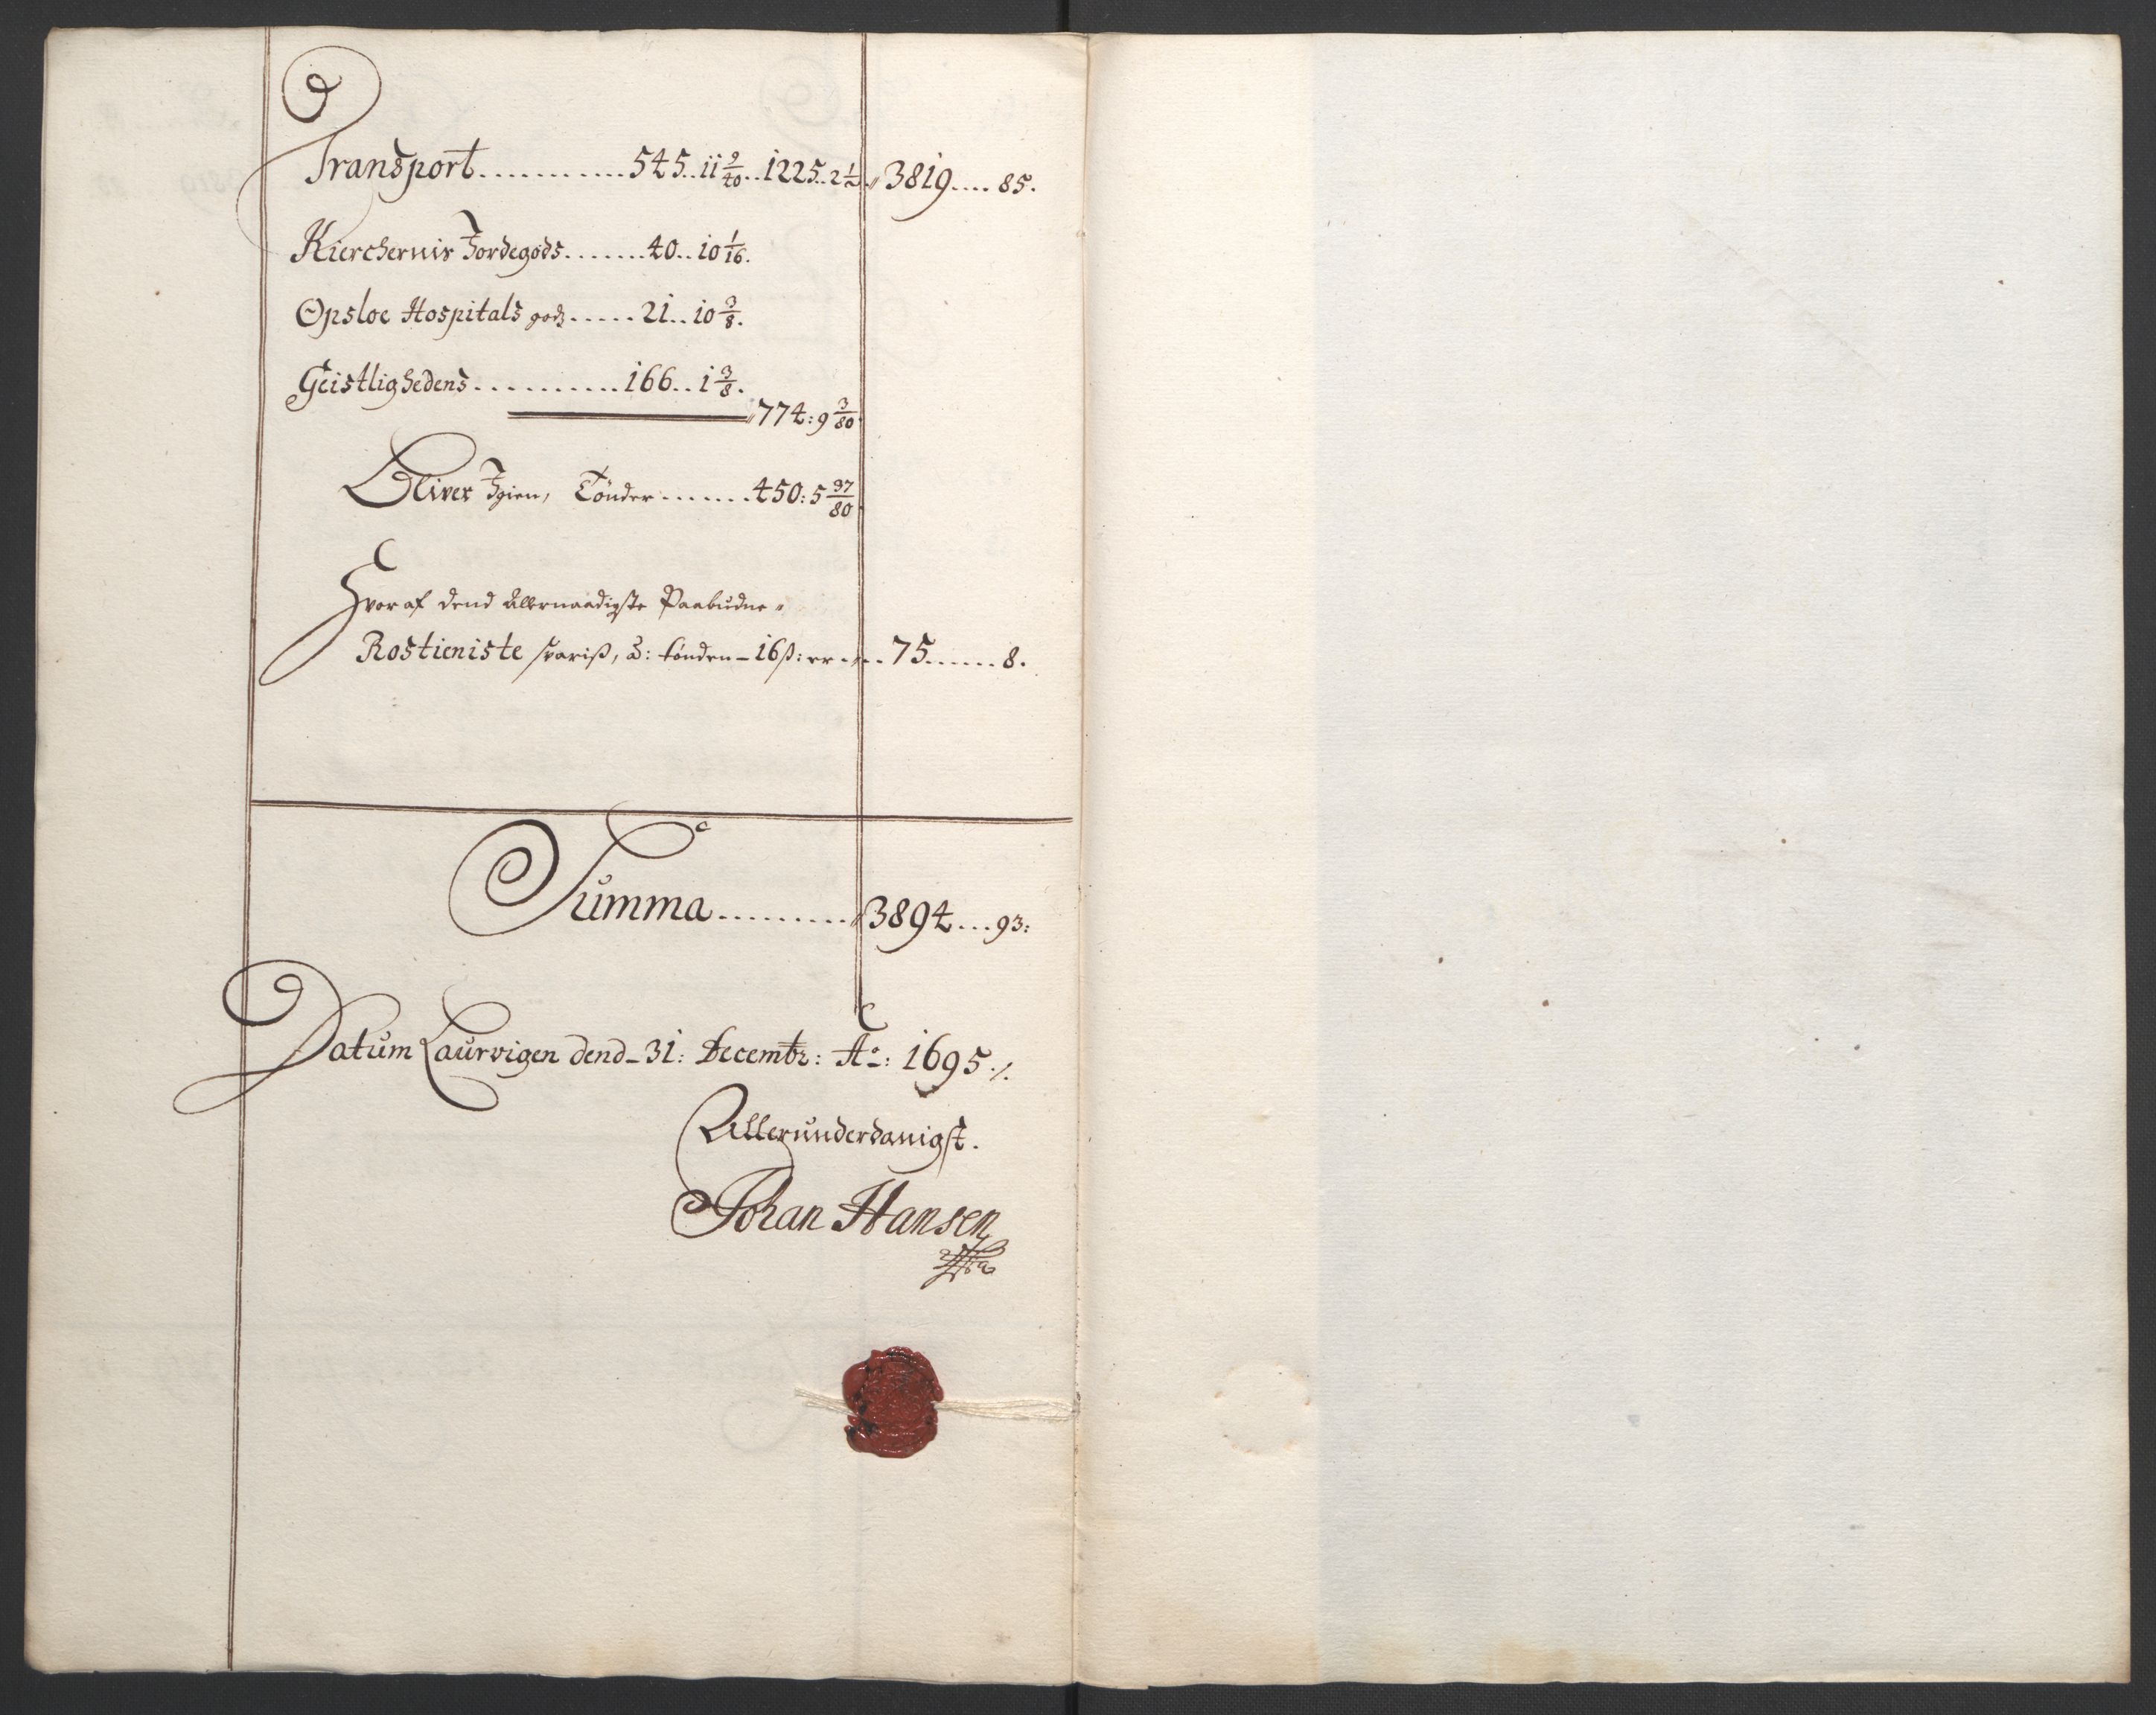 Transport ........... 545 .. 11 9/40 .. 1225 .. 2 1/2 // 3819 .... 85.
Kierchernis Jordegods ....... 40 .. 10 1/16.
Opsloe Hospitals godz ..... 21 .. 10 3/8.
Geistlighedens .......... 166 .. 1 3/8.
// 774: 9 3/80
Bliver Igien, Tønder ....... 450: 5 37/80
Hvoraf dend Allernaadigste Paabudne //
Rostieniste svaris, à: tønden - 16 ß: er .. // .. 75 ...... 8.
Summa ......... // 3894 ... 93:
Datum Laurvigen dend - 31: Decembr: Ao: 1695 ./.
Allerunderdanigst.
Johan Hansen